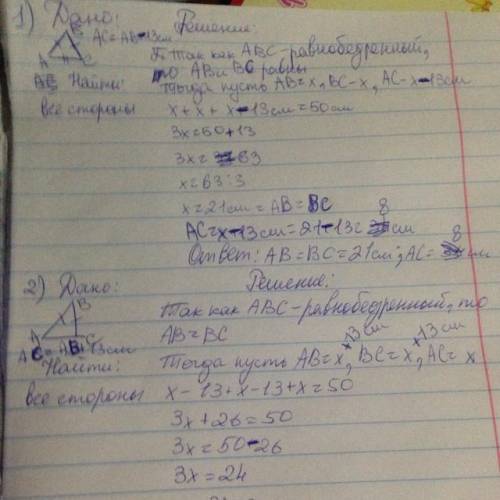 1) Дано: Решение:
AC=AB-13см
B
A C
Так как ABC-равнобедренный,
то AB и BC равны
Найти: Тогда пусть AB=x, BC-x, AC-x-13см
все стороны x+x+x-13см=50см
3x=50+13
3x=63
x=63:3
x=21см=AB=BC
AC=x-13см=21-13с 8 см
Ответ: AB=BC=21см; AC= 8 см
2) Дано: Решение:
B
A C
Так как ABC-равнобедренный, то
AC=AB-13см AB=BC
Найти: Тогда пусть AB=x+13см, BC=x+13см, AC=x
все стороны x-13+x-13+x=50
3x+26=50
3x=50-26
3x=24